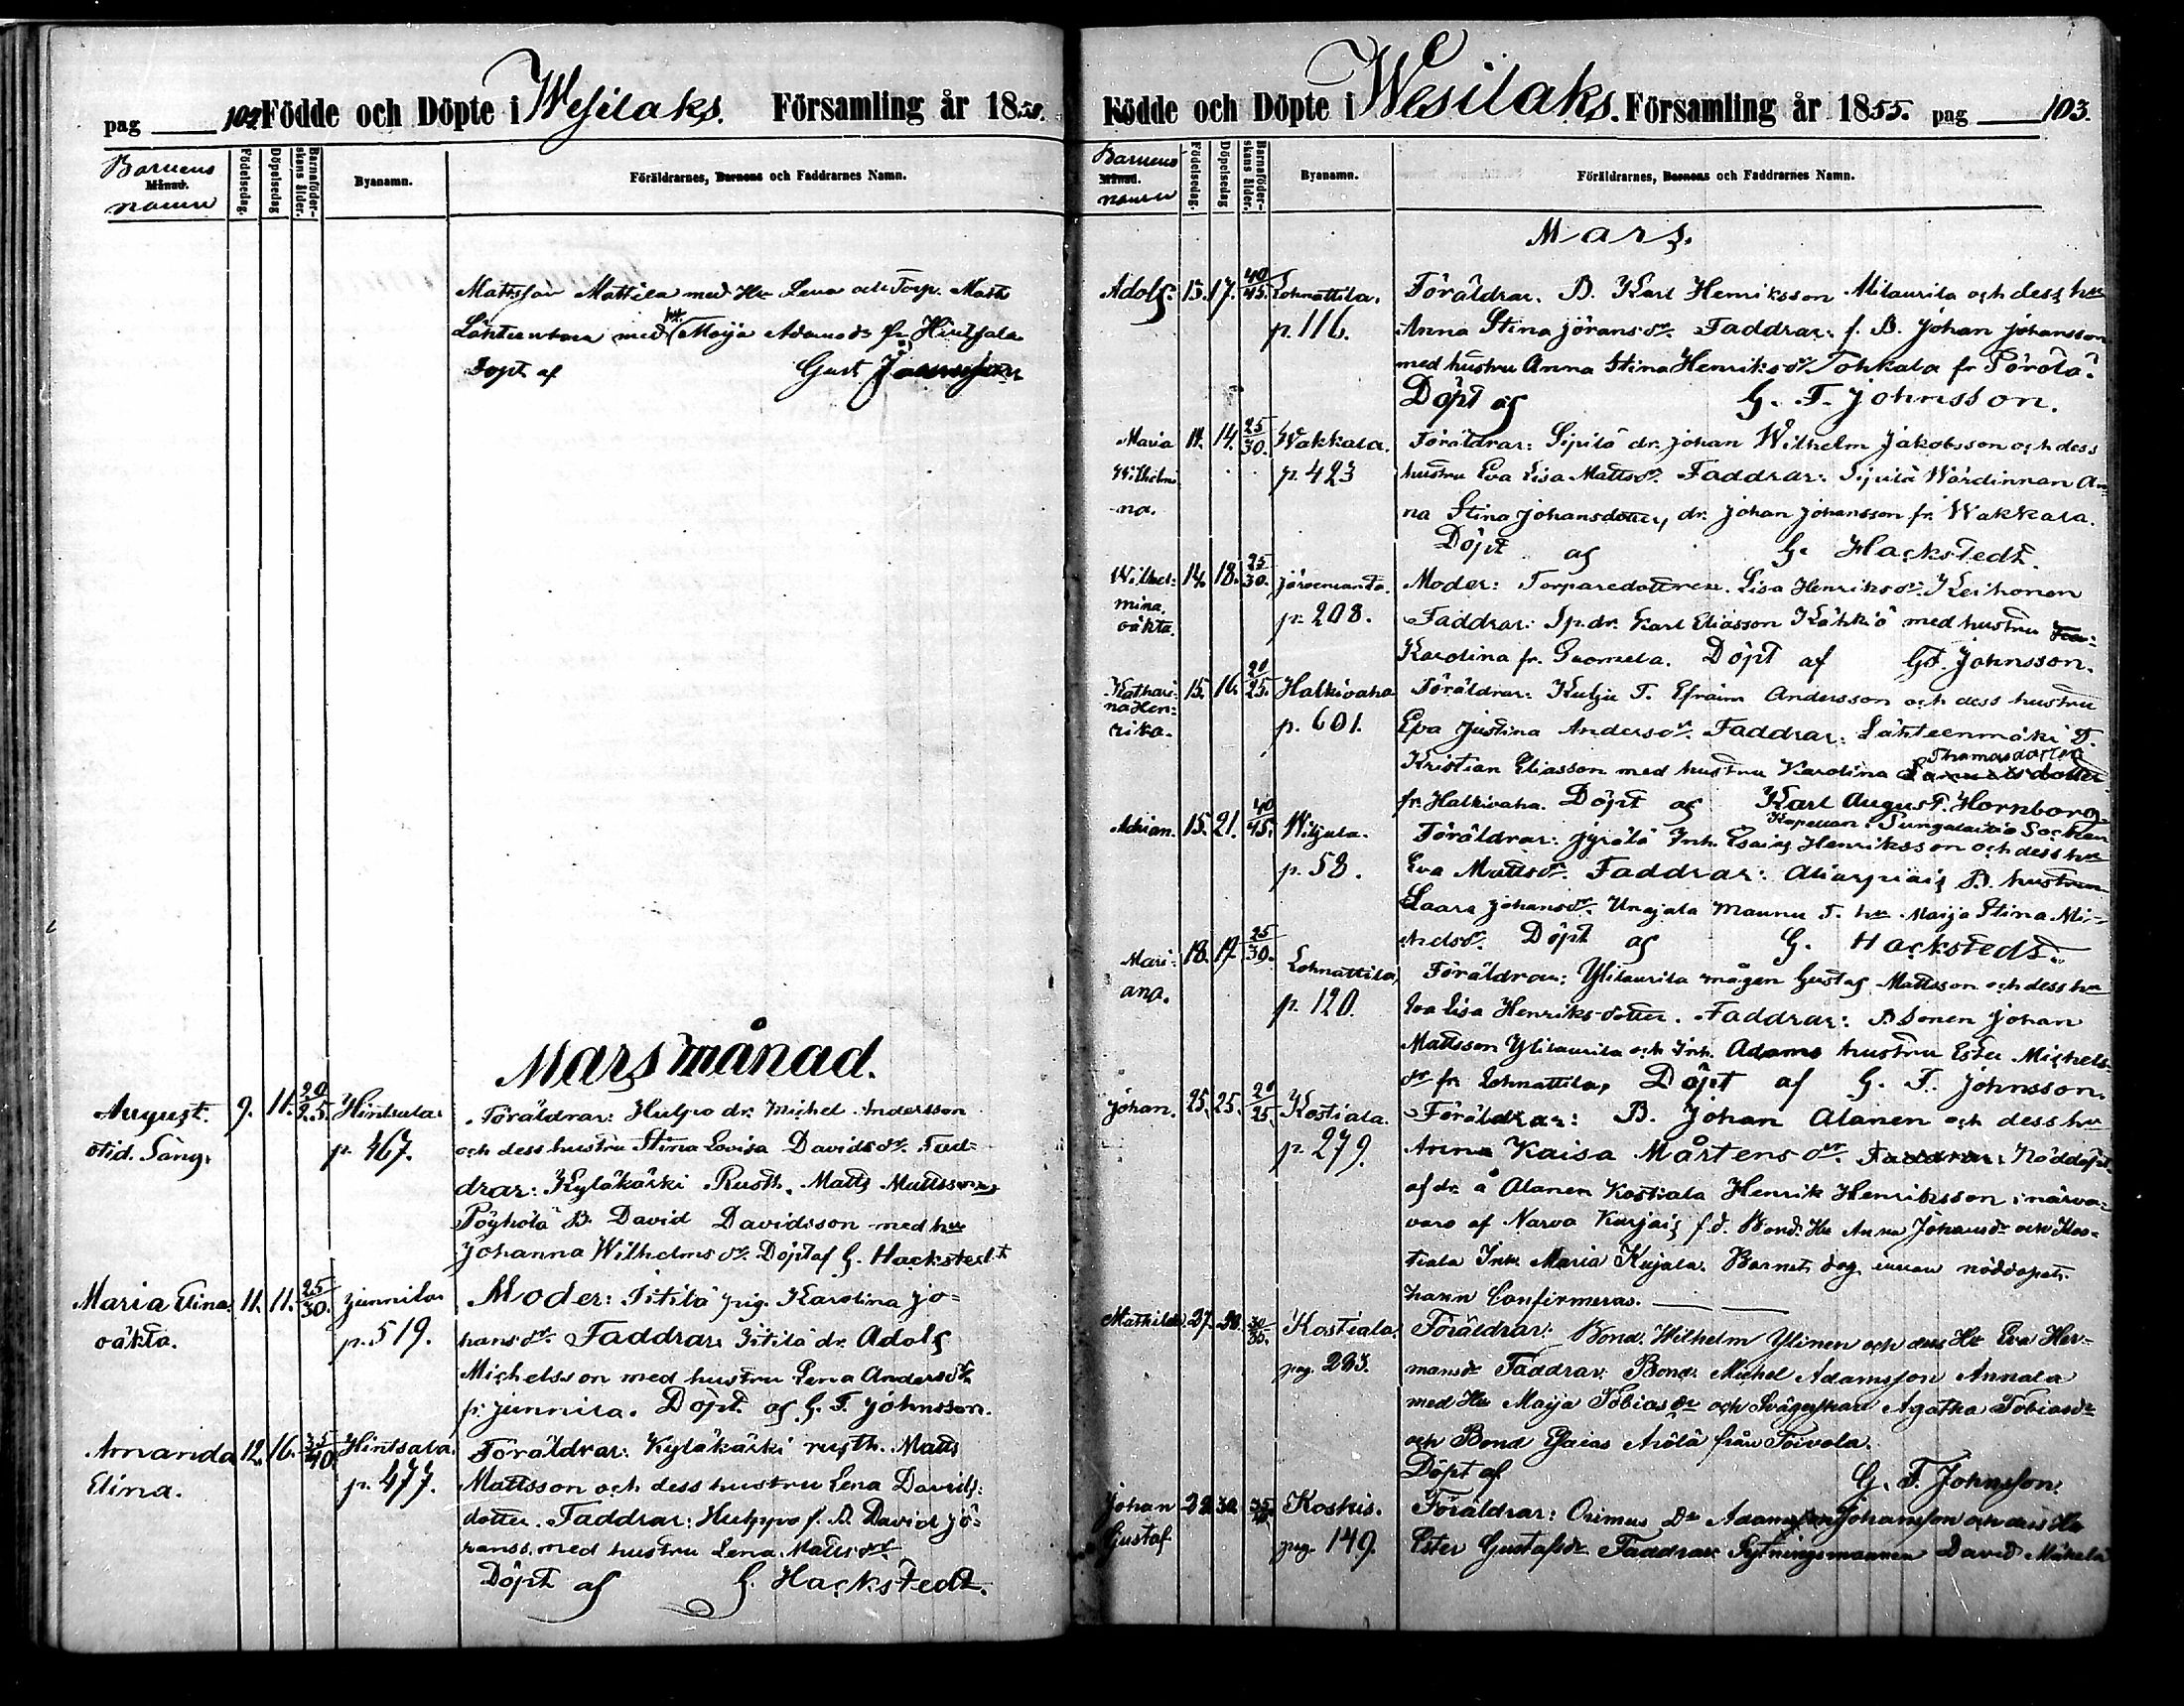 pag 102 Födde och Döpte i Wesilaks. Församling år 1855.
Barnens
Månad.
namn
Födelsedag.
Döpelsedag
Barnaföderskans ålder.
Byanamn.
Föräldrarnes, Barnens och Faddrarnes Namn.
Mattsson Mattila med Hu Lena och Torp. Matts
med hu Maija Adamsdr fr. Hintsala
Döpt af Gust
Mars månad.
August. 9. 11. 20/25. Hintsala Föräldrar: Hulpo dr. Michel Andersson
otid. Säng. p. 467. och dess hustru Stina Lovisa Davidsdr. Fad-
drar: Kyläkäski Rusth. Matts Mattsson,
Pöyhölä B. David Davidsson med hu
Johanna Wilhelmsdr. Döpt af G. Hackstedt
Maria Elina. 11. 11. 25/30. Junnila Moder: Iitilä pig. Karolina Jo-
oäkta. p. 519. hansdr. Faddrar: Iitilä dr. Adolf
Michelsson med hustru Lena Andersdr.
fr. Junnila. Döpt af G. F. Johnsson.
Amanda 12. 16. 35/40. Hintsala. Föräldrar: Kyläkäski rusth. Matts
Elina. p. 477. Mattsson och dess hustru Lena Davids-
dotter. Faddrar: Hulppo f. B. David Jö-
ranss. med hustru Lena Mattsdr.
Döpt af G. Hackstedt.
Födde och Döpte i Wesilaks. Församling år 1855. pag 103.
Barnens
Månad.
namn
Födelsedag.
Döpelsedag
Barnaföderskans ålder.
Byanamn.
Föräldrarnes, Barnens och Faddrarnes Namn.
Mars.
Adolf. 13. 17. 40/45. Lohnattila. Föräldrar. B. Karl Henriksson Alilaurila och dess hu
p. 116. Anna Stina Jöransdr. Faddrar: f. B. Johan Johansson
med hustru Anna Stina Henriksdr. Tohkala fr Pörölä.
Döpt af G. F. Johnsson.
Maria 14. 14. 25/30. Wakkala. Föräldrar: Sipilä dr. Johan Wilhelm Jakobsson och dess
Wilhelmi p. 423 hustru Eva Lisa Mattsdr. Faddrar: Sipilä Wärdinnan An-
na. na Stina Johansdotter, dr. Johan Johansson fr. Wakkala.
Döpt af G. Hackstedt.
Wilhel- 14. 18. 25/30. Järvenranta. Moder: Torparedottren Lisa Henriksdr. Keihonen
mina, p. 208. Faddrar: Sp. dr. Karl Eliasson Kähkiö med hustru
oäkta. Karolina fr. Suomela. Döpt af G. F. Johnsson.
Kathari- 15. 16. 20/25. Halkivaha Föräldrar: Kulju T. Efraim Andersson och dess hustru
na Hen- p. 601. Eva Justina Andersdr. Faddrar: Lähteenmäki T.
rika. Thomasdotter
Kristian Eliasson med hustru Karolina Samuelsdotter
fr. Halkivaha. Döpt af Karl August Hornborg
Kapellan i Pungalaitio Socken
Adrian. 15. 21. 40/45. Wiljala. Föräldrar: Jyrälä Inh. Esaias Henriksson och dess hu
p. 58. Eva Mattsdr. Faddrar: B. hustrun
Laara Johansdr. Maunu T. hu Maija Stina Mi-
chelsdr. Döpt af G. Hackstedt.
Mari- 18. 19. 25/30. Lohnattila, Föräldrar: Ylilaurila mågen Gustaf Mattsson och dess hu
ana. p. 120. Eva Lisa Henriks-dotter. Faddrar: B sonen Johan
Mattsson Ylilaurila och Inh. Adams hustru Ester Michels-
dr fr. Lohnattila, Döpt af G. F. Johnsson.
Johan. 25. 25. 20/25. Kostiala. Föräldrar: B. Johan Alanen och dess hu
p. 279. Anna Kaisa Mårtensdr. Faddrar: Nöddöpt
af dr. å Alanen Kostiala Henrik Henriksson i närva-
varo af Narva f.d. Bond. Hu Anna Johansdr och Kos-
tiala Inh. Maria Kujala. Barnet dog innan nöddopet
hann Confirmeras.
Mathilda. 27. 30. 30/35. Kostiala. Föräldrar: Bond. Wilhelm Ylinen och dess Hu Eva Her-
pag. 283. mansdr Faddrar: Bond. Michel Adamsson Annala
med Hu Maija Tobiasdr och Svägerskan Agatha Tobiasdr
och Bond Esaias från Toivola.
Döpt af G. F. Johnsson.
Johan 29. 30. Koskis. Föräldrar: Orimus Dr Adam Johansson och dess Hu
Gustaf pag. 149. Ester Gustafsdr Faddrar: Sytningsmannen David Mäkelä